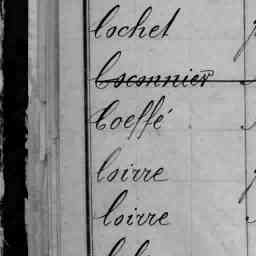 Cochet
Coconnier
Coeffé
Coirre
Coirre